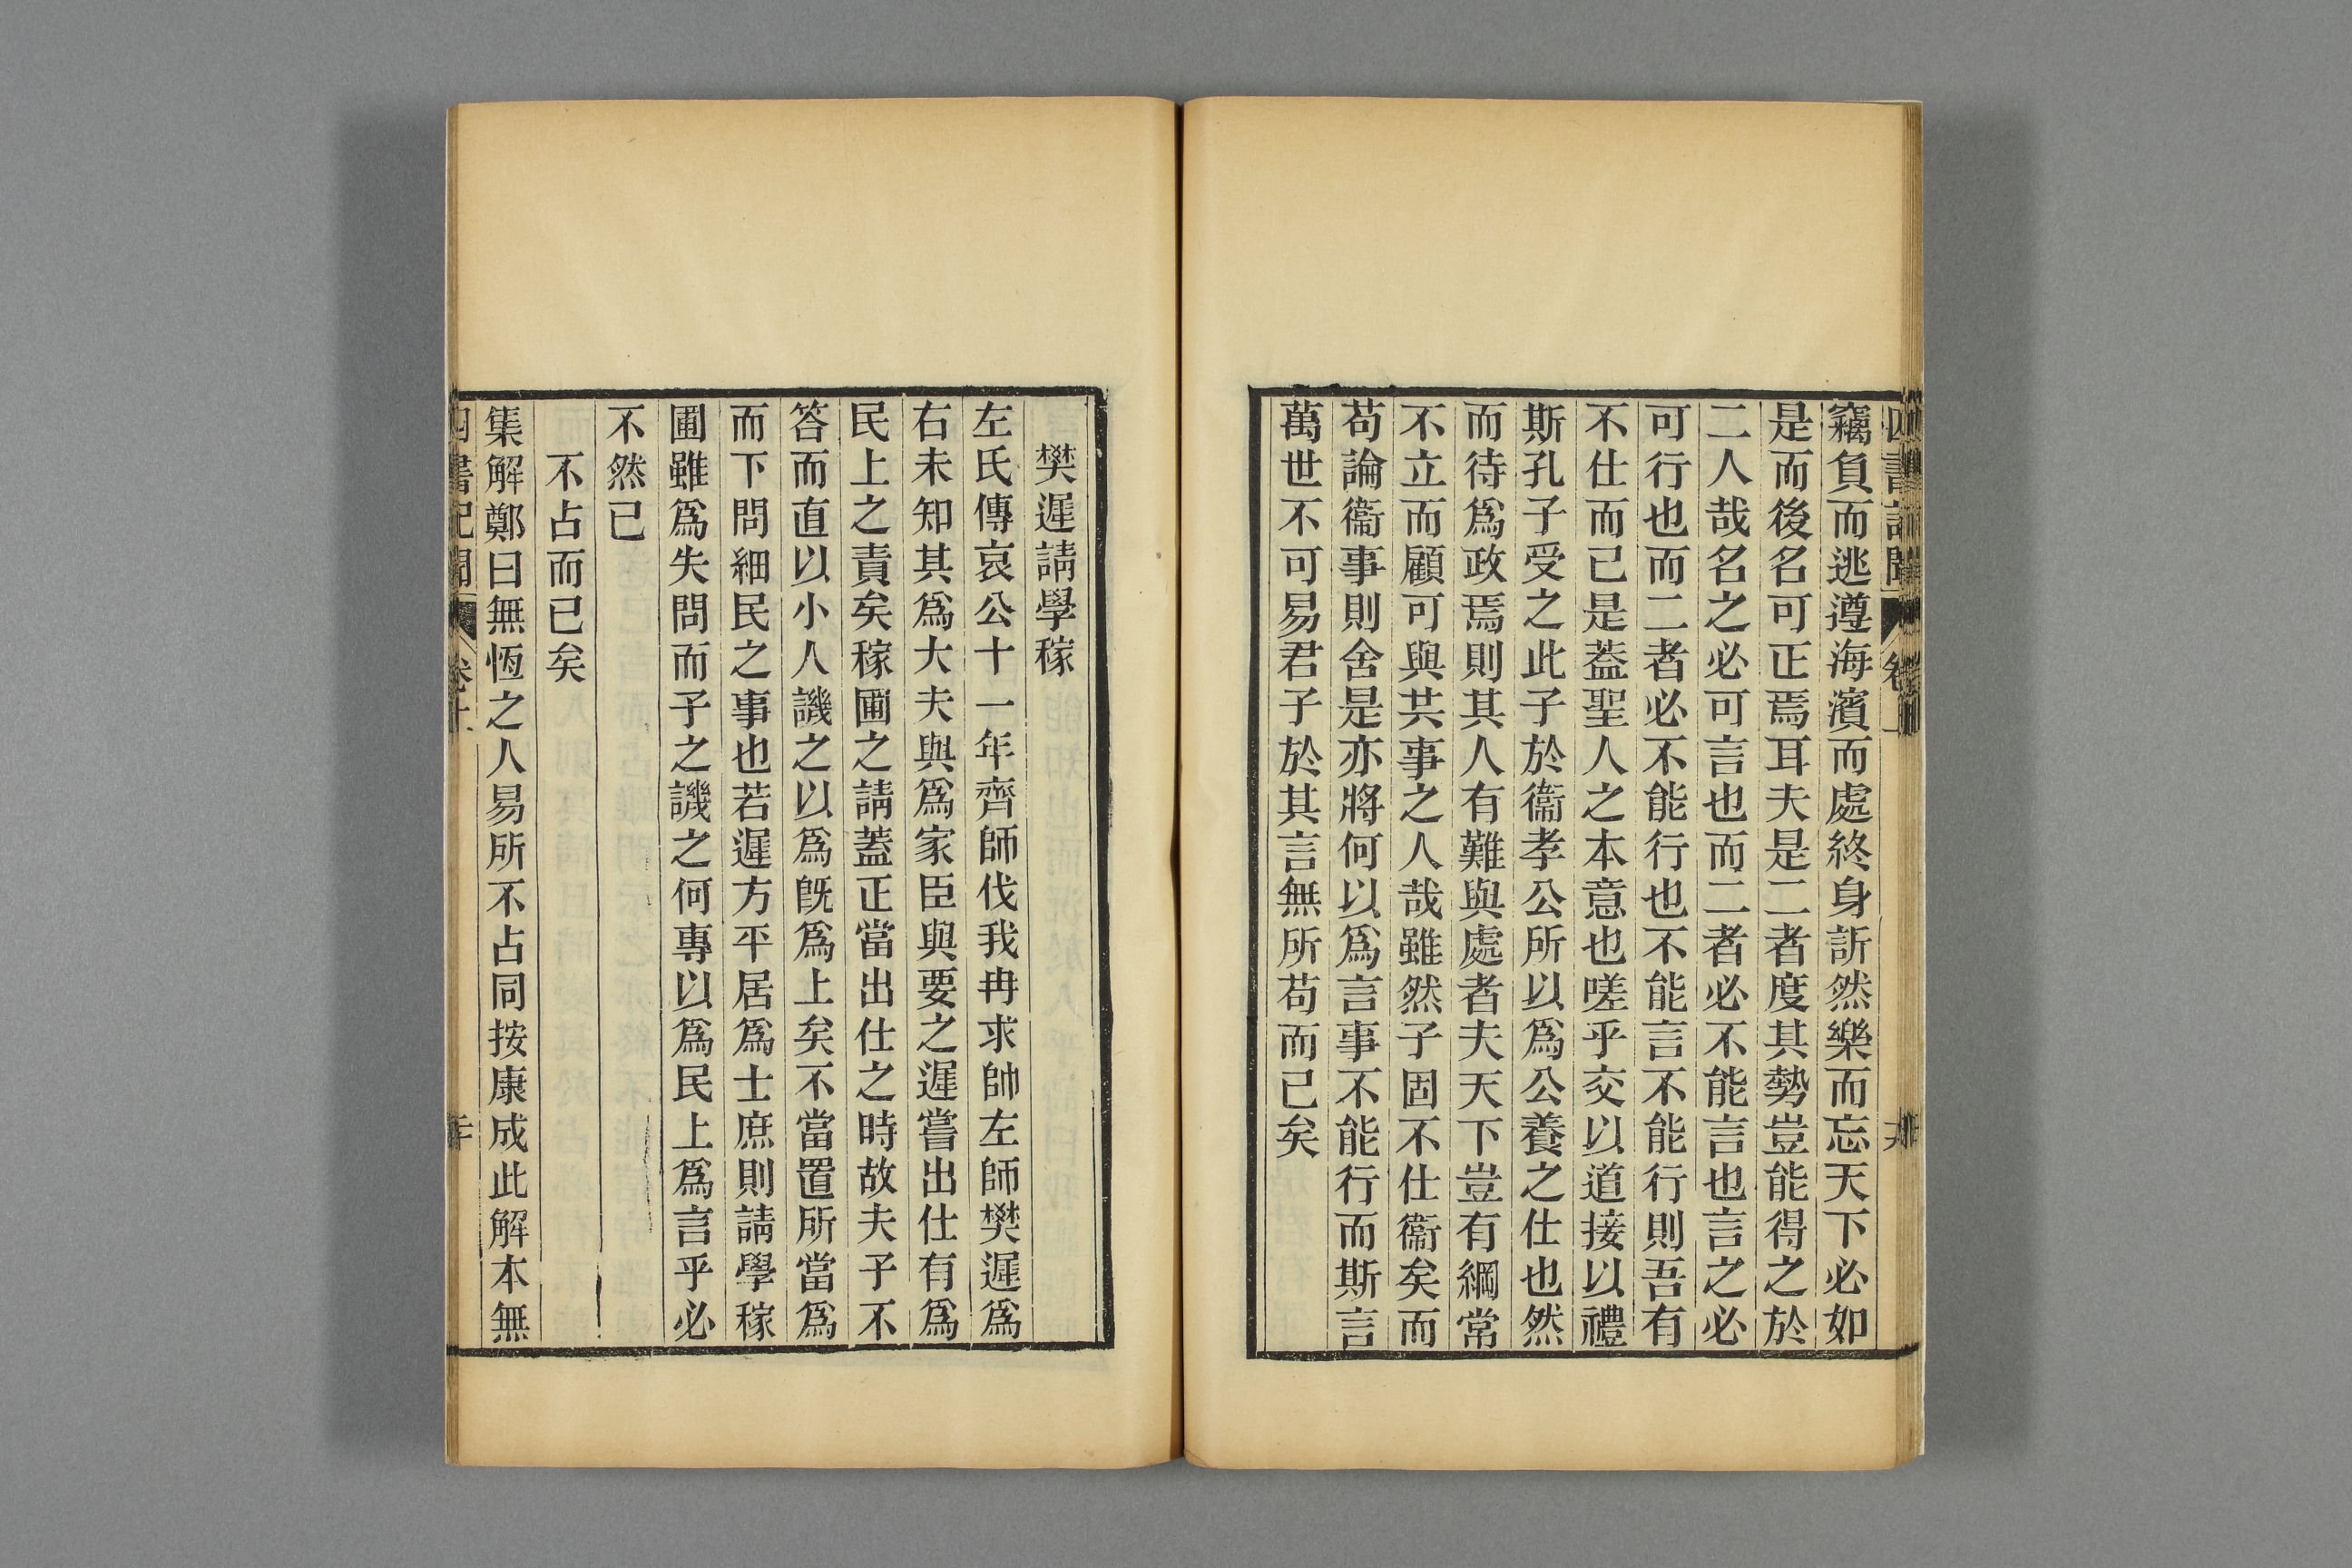 竊負而逃遵海濱而處終身訢然樂而忘天下必如
是而後名可正焉耳夫是二者度其勢豈能得之於
二人哉名之必可言也而二者必不能言也言之必
可行也而二者必不能行也不能言不能行則吾有
不仕而已是葢聖人之本意也嗟乎交以道接以禮
斯孔子受之此子於衞孝公所以爲公養之仕也然
而待爲政焉則其人有難與處者夫天下豈有綱常
不立而顧可與共事之人哉雖然子固不仕衞矣而
苟論衞事則舍是亦將何以爲言事不能行而斯言
萬世不可易君子於其言無所苟而已矣
樊遲請學稼
左氏傳哀公十一年齊師伐我冉求帥左師樊遲爲
右未知其爲大夫與爲家臣與要之遲嘗出仕有爲
民上之責矣稼圃之請蓋正當出仕之時故夫子不
答而直以小人譏之以爲旣爲上矣不當置所當爲
而下問細民之事也若遲方平居爲士庶則請學稼
圃雖爲失問而子之譏之何專以爲民上爲言乎必
不然已
不占而已矣
集解鄭曰無恆之人易所不占同按康成此解本無
四書記聞 卷十